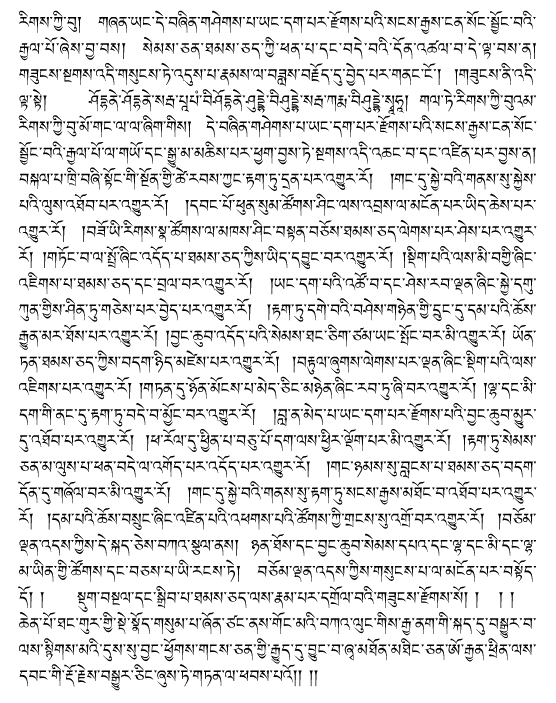 རིགས་ཀྱི་བུ། གཞན་ཡང་དེ་བཞིན་གཤེགས་པ་ཡང་དག་པར་རྫོགས་པའི་སངས་རྒྱས་ངན་སོང་སྦྱོང་བའི་
རྒྱལ་པོ་ཞེས་བྱ་བས། སེམས་ཅན་ཐམས་ཅད་ཀྱི་ཕན་པ་དང་བདེ་བའི་དོན་འཚལ་བ་དེ་ལྟ་བས་ན།
གཟུངས་སྔགས་འདི་གསུངས་ཏེ་འདུས་པ་རྣམས་ལ་བཟླས་བརྗོད་དུ་བྱེད་པར་གནང་ངོ་། །གཟུངས་ནི་འདི་
ལྟ་སྟེ། ཤོདྷནེ་ཤོདྷནེ་སརྦ་པཱཔཾ་བིཤོདྷནེ་ཤུདྡྷེ་བིཤུདྡྷེ་སརྦ་ཀརྨ་བིཤུདྡྷེ་སྭཱཧཱ། གལ་ཏེ་རིགས་ཀྱི་བུའམ་
རིགས་ཀྱི་བུ་མོ་གང་ལ་ལ་ཞིག་གིས། དེ་བཞིན་གཤེགས་པ་ཡང་དག་པར་རྫོགས་པའི་སངས་རྒྱས་ངན་སོང་
སྦྱོང་བའི་རྒྱལ་པོ་ལ་གཡོ་དང་སྒྱུ་མ་མཆིས་པར་ཕྱག་བྱས་ཏེ་སྔགས་འདི་འཆང་བ་དང་འཛིན་པར་བྱས་ན།
བསྐལ་པ་ཁྲི་བཞི་སྟོང་གི་སྔོན་གྱི་ཚེ་རབས་ཀྱང་རྟག་ཏུ་དྲན་པར་འགྱུར་རོ། །གང་དུ་སྐྱེ་བའི་གནས་སུ་སྐྱེས་
པའི་ལུས་འཐོབ་པར་འགྱུར་རོ། །དབང་པོ་ཕུན་སུམ་ཚོགས་ཤིང་ལས་འབྲས་ལ་མངོན་པར་ཡིད་ཆེས་པར་
འགྱུར་རོ། །བཟོ་ཡི་རིགས་སྣ་ཚོགས་ལ་མཁས་ཤིང་བསྟན་བཅོས་ཐམས་ཅད་ལེགས་པར་ཤེས་པར་འགྱུར་
རོ། །གཏོང་བ་ལ་སྤྲོ་ཞིང་འདོད་པ་ཐམས་ཅད་ཀྱིས་ཡིད་དབྱུང་བར་འགྱུར་རོ། །སྡིག་པའི་ལས་མི་བགྱི་ཞིང་
འཇིགས་པ་ཐམས་ཅད་དང་བྲལ་བར་འགྱུར་རོ། །ཡང་དག་པའི་འཚོ་བ་དང་ཤེས་རབ་ལྡན་ཞིང་སྐྱེ་དགུ་
ཀུན་གྱིས་ཤིན་ཏུ་གཅེས་པར་བྱེད་པར་འགྱུར་རོ། །རྟག་ཏུ་དགེ་བའི་བཤེས་གཉེན་གྱི་དྲུང་དུ་དམ་པའི་ཆོས་
རྒྱུན་མར་ཐོས་པར་འགྱུར་རོ། །བྱང་ཆུབ་འདོད་པའི་སེམས་ཐང་ཅིག་ཙམ་ཡང་སྤོང་བར་མི་འགྱུར་རོ། ཡོན་
ཏན་ཐམས་ཅད་ཀྱིས་བདག་ཉིད་མཛེས་པར་འགྱུར་རོ། །བརྟུལ་ཞུགས་ལེགས་པར་ལྡན་ཞིང་སྡིག་པའི་ལས་
འཇིགས་པར་འགྱུར་རོ། །གཏན་དུ་ཉོན་མོངས་པ་མེད་ཅིང་མཉེན་ཞིང་རབ་ཏུ་ཞི་བར་འགྱུར་རོ། །ལྷ་དང་མི་
དག་གི་ནང་དུ་རྟག་ཏུ་བདེ་བ་མྱོང་བར་འགྱུར་རོ། །བླ་ན་མེད་པ་ཡང་དག་པར་རྫོགས་པའི་བྱང་ཆུབ་མྱུར་
དུ་འཐོབ་པར་འགྱུར་རོ། །ཕ་རོལ་ཏུ་ཕྱིན་པ་བཅུ་པོ་དག་ལས་ཕྱིར་ལྡོག་པར་མི་འགྱུར་རོ། །རྟག་ཏུ་སེམས་
ཅན་མ་ལུས་པ་ཕན་བདེ་ལ་འགོད་པར་འདོད་པར་འགྱུར་རོ། །གང་ཉམས་སུ་བླངས་པ་ཐམས་ཅད་བདག་
དོན་དུ་གཞོལ་བར་མི་འགྱུར་རོ། །གང་དུ་སྐྱེ་བའི་གནས་སུ་རྟག་ཏུ་སངས་རྒྱས་མཐོང་བ་འཐོབ་པར་འགྱུར་
རོ། །དམ་པའི་ཆོས་བསྲུང་ཞིང་འཛིན་པའི་འཕགས་པའི་ཚོགས་ཀྱི་གྲངས་སུ་འགྲོ་བར་འགྱུར་རོ། །བཅོམ་
ལྡན་འདས་ཀྱིས་དེ་སྐད་ཅེས་བཀའ་སྩལ་ནས། ཉན་ཐོས་དང་བྱང་ཆུབ་སེམས་དཔའ་དང་ལྷ་དང་མི་དང་ལྷ་
མ་ཡིན་གྱི་ཚོགས་དང་བཅས་པ་ཡི་རངས་ཏེ། བཅོམ་ལྡན་འདས་ཀྱིས་གསུངས་པ་ལ་མངོན་པར་བསྟོད་
དོ། ། སྡུག་བསྔལ་དང་སྒྲིབ་པ་ཐམས་ཅད་ལས་རྣམ་པར་དགྲོལ་བའི་གཟུངས་རྫོགས་སོ། ། ། །
ཆེན་པོ་ཐང་གུར་གྱི་སྡེ་སྣོད་གསུམ་པ་ཞོན་ཙང་ནས་གོང་མའི་བཀའ་ལུང་གིས་རྒྱ་ནག་གི་སྐད་དུ་བསྒྱུར་བ་
ལས་སྙིགས་མའི་དུས་སུ་བྱང་ཕྱོགས་གངས་ཅན་གྱི་རྒྱུད་དུ་བྱུང་བ་ཞྭ་མཐོན་མཐིང་ཅན་ཨོ་རྒྱན་ཕྲིན་ལས་
དབང་གི་རྡོ་རྗེས་བསྒྱུར་ཅིང་ཞུས་ཏེ་གཏན་ལ་ཕབས་པའོ།། །།